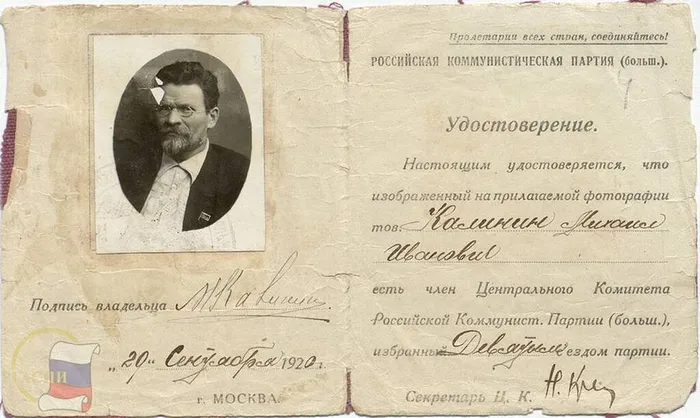 Подпись владельца МКалинин
„29" Сентября 1920 г.
г. МОСКВА.
Пролетарии всех стран, соединяйтесь!
РОССИЙСКАЯ КОММУНИСТИЧЕСКАЯ ПАРТИЯ (больш.).
Удостоверение.
Настоящим удостоверяется, что
изображенный на прилагаемой фотографии
тов. Калинин Михаил
Иванович
есть член Центрального Комитета
Российской Коммунист. Партии (больш.),
избранный Девятым ездом партии.
Секретарь Ц. К.